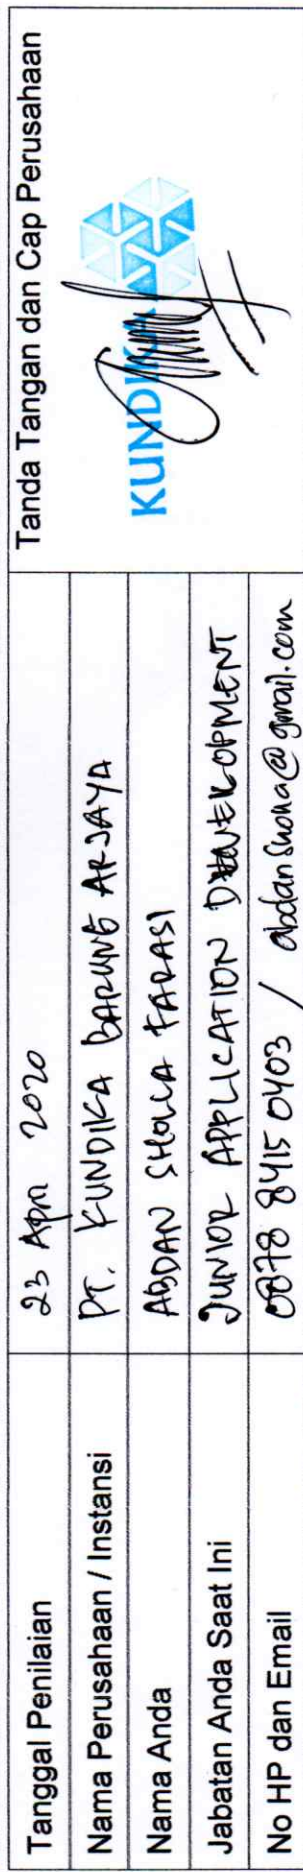 Tanggal Penilaian 23 April 2020 Tanda Tangan dan Cap Perusahaan
Nama Perusahaan / Instansi PT. KUNDIKA BARUNG ARJAYA
KUNDIKA
Nama Anda ABDAN SHOLLA FARASI
Jabatan Anda Saat Ini JUNIOR APPLICATION DEVELOPMENT
No HP dan Email 0878 8415 0403 / abdanshona@gmail.com